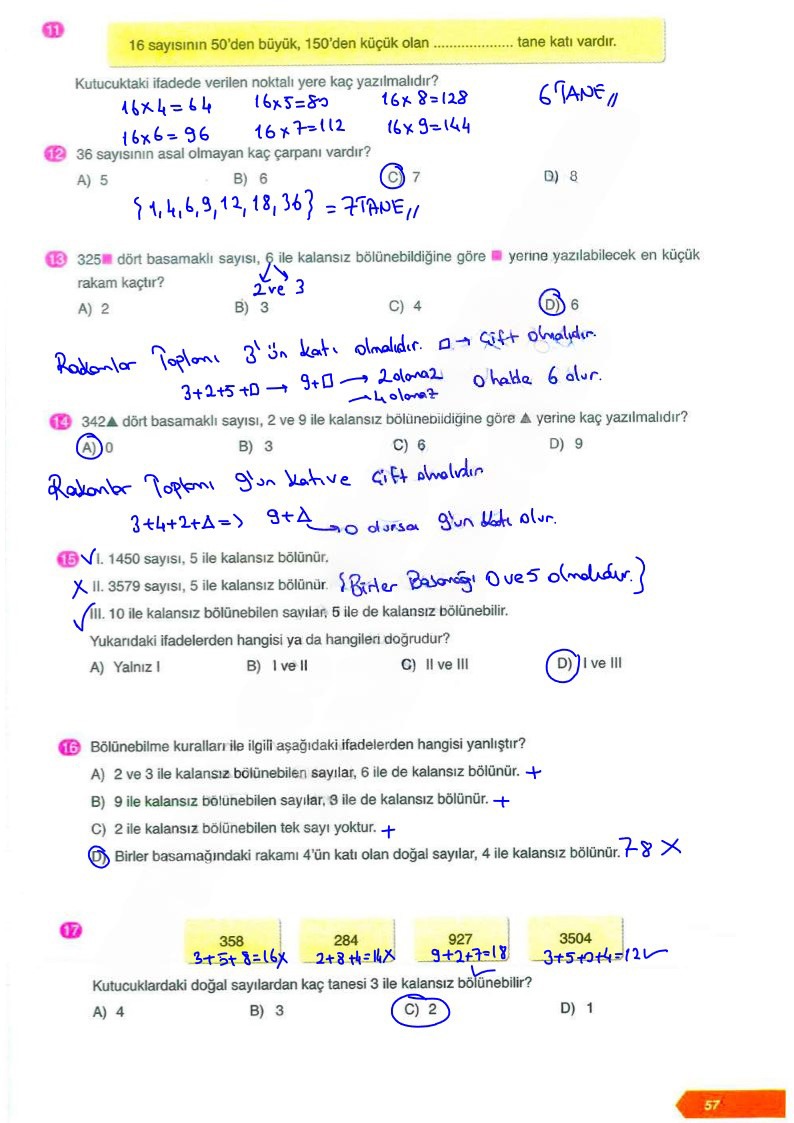 11
16 sayısının 50'den büyük, 150'den küçük olan .................... tane katı vardır.
Kutucuktaki ifadede verilen noktalı yere kaç yazılmalıdır?
16x4=64 16x5=80 16x8=128 6 TANE //
16x6=96 16x7=112 16x9=144
12 36 sayısının asal olmayan kaç çarpanı vardır?
A) 5 B) 6 C) 7 D) 8
{1,4,6,9,12,18,36} = 7TANE //
13 325■ dört basamaklı sayısı, 6 ile kalansız bölünebildiğine göre ■ yerine yazılabilecek en küçük
rakam kaçtır?
2 ve 3
A) 2 B) 3 C) 4 D) 6
Rakamlar Toplamı 3'ün katı olmalıdır. □→ Çift olmalıdır.
3+2+5+□ → 9+□ → 2 olamaz O halde 6 olur.
→4 olamaz
14 342▲ dört basamaklı sayısı, 2 ve 9 ile kalansız bölünebildiğine göre ▲ yerine kaç yazılmalıdır?
A) 0 B) 3 C) 6 D) 9
Rakamlar Toplamı 9'un katı ve Çift olmalıdır
3+4+2+Δ => 9+Δ → 0 olursa 9'un katı olur.
15 ✓ I. 1450 sayısı, 5 ile kalansız bölünür.
X II. 3579 sayısı, 5 ile kalansız bölünür. {Birler Basamağı 0 ve 5 olmalıdır.}
✓ III. 10 ile kalansız bölünebilen sayılar, 5 ile de kalansız bölünebilir.
Yukarıdaki ifadelerden hangisi ya da hangileri doğrudur?
A) Yalnız I B) I ve II C) II ve III D) I ve III
16 Bölünebilme kuralları ile ilgili aşağıdaki ifadelerden hangisi yanlıştır?
A) 2 ve 3 ile kalansız bölünebilen sayılar, 6 ile de kalansız bölünür. +
B) 9 ile kalansız bölünebilen sayılar, 3 ile de kalansız bölünür. +
C) 2 ile kalansız bölünebilen tek sayı yoktur. +
D) Birler basamağındaki rakamı 4'ün katı olan doğal sayılar, 4 ile kalansız bölünür. 78 X
17
358 284 927 3504
3+5+8=16X 2+8+4=14X 9+2+7=18 ✓ 3+5+0+4=12✓
Kutucuklardaki doğal sayılardan kaç tanesi 3 ile kalansız bölünebilir?
A) 4 B) 3 C) 2 D) 1
57